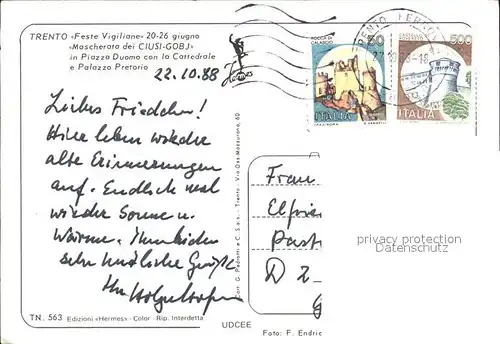 TRENTO «Feste Vigiliane» 20-26 giugno
«Mascherata dei CIUSI-GOBJ»
in Piazza Duomo con la Cattedrale
e Palazzo Pretorio
22.10.88
ROCCA DI
CALASCIO
50
ITALIA
500
ITALIA
Liebes Friedchen!
Hier leben wieder
alte Erinnerungen
auf. Endlich mal
wieder Sonne u.
Wärme. Ihnen beiden
sehr herzliche Grüße
Ihr
Frau
Elfrie
Past
D 2-
privacy protection
Datenschutz
TN. 563 Edizioni «Hermes» - Color - Rip. Interdetta
UDCEE
Foto: F. Endric